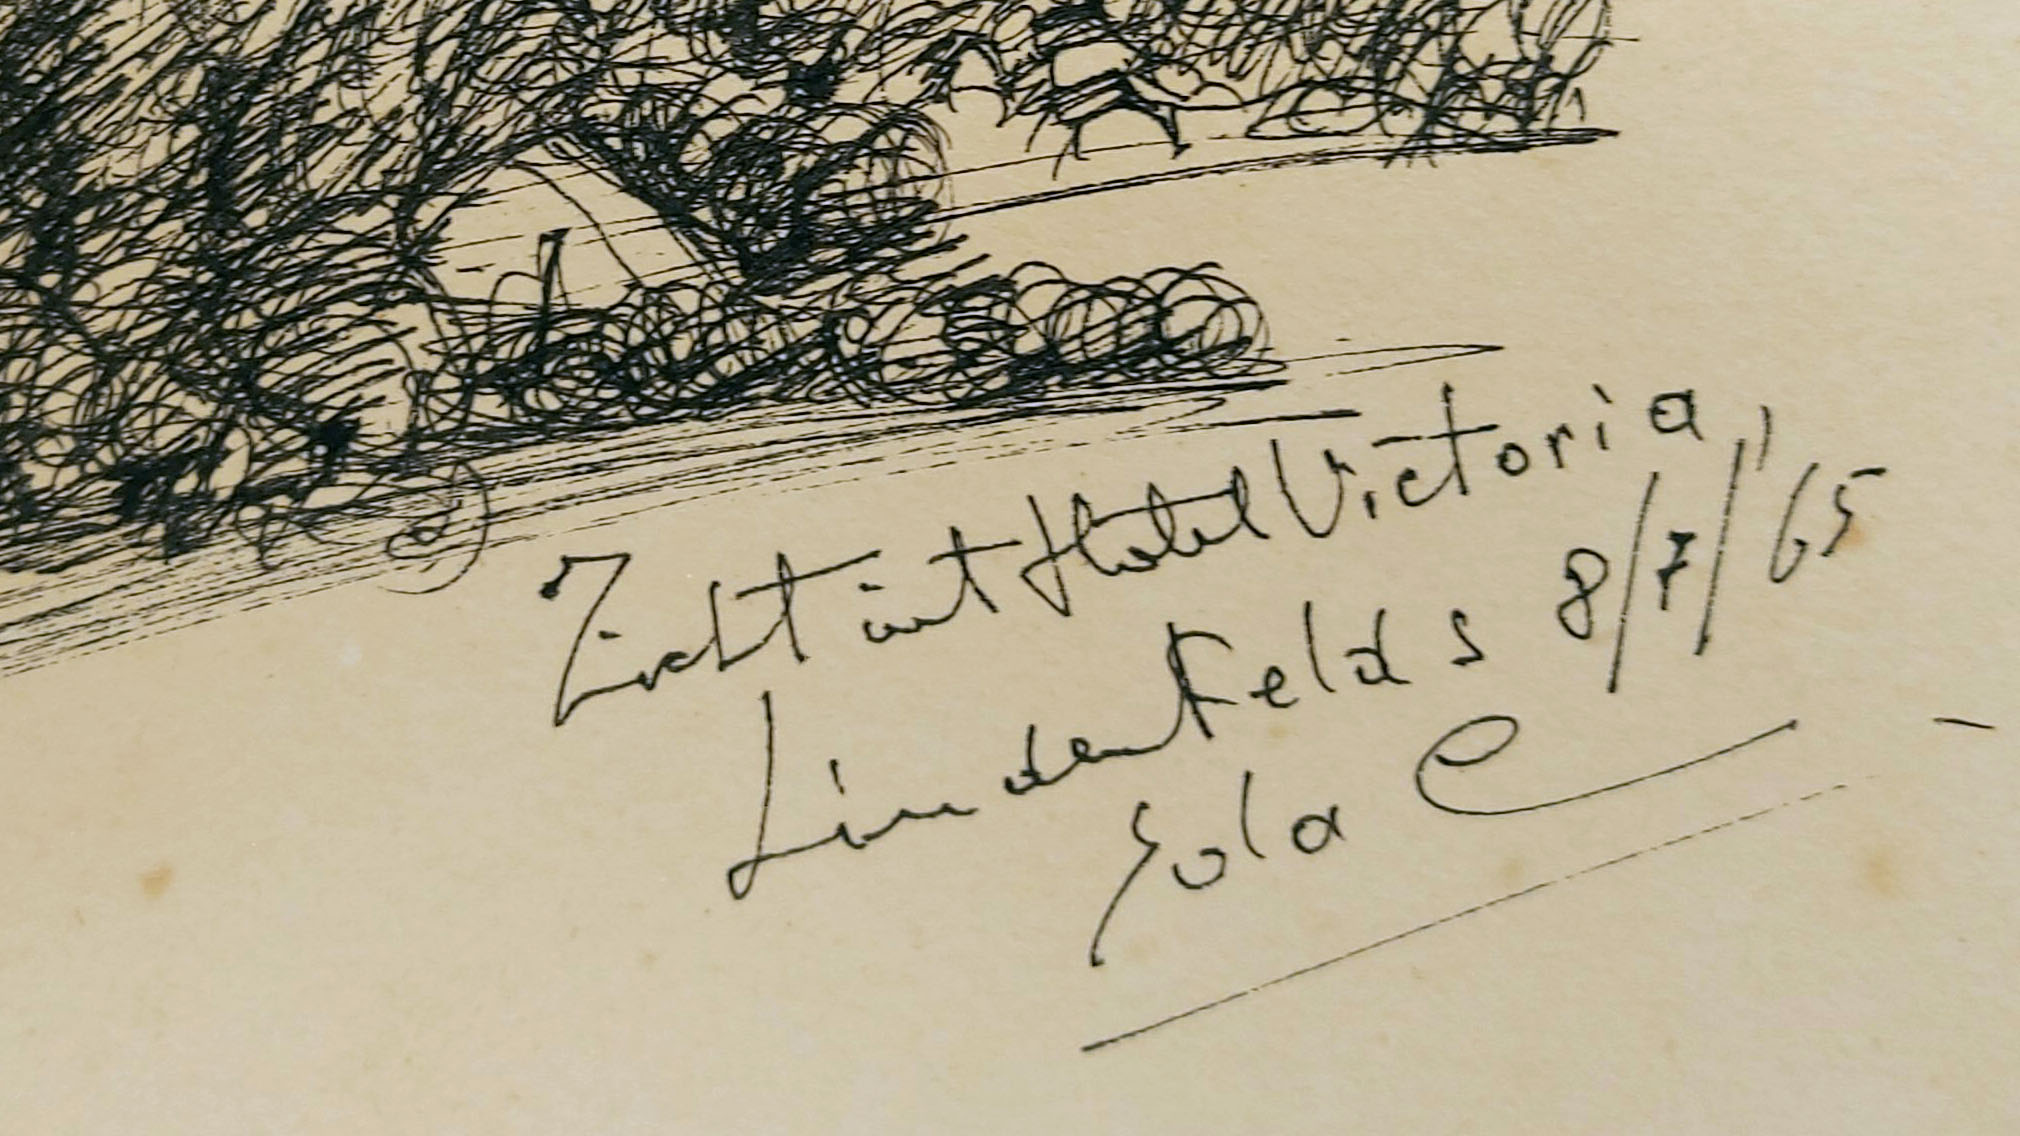 Zicht uit Hotel Victoria,
Lindenfelds 8/7/'65
Sola